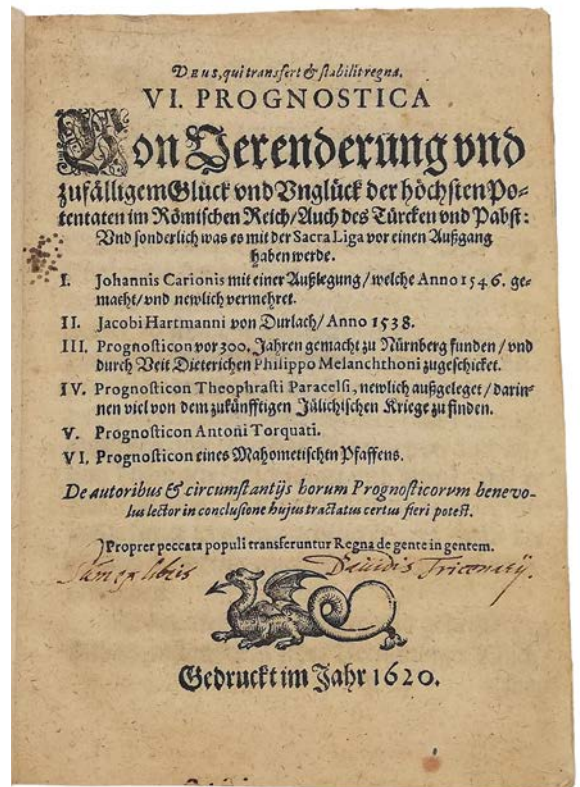 DEUS, qui transfert & stabilit regna.
VI. PROGNOSTICA
Von Verenderung vnd
zufälligem Glück vnd Vnglück der höchsten Po⸗
tentaten im Römischen Reich/ Auch des Türcken vnd Pabst:
Vnd sonderlich was es mit der Sacra Liga vor einen Außgang
haben werde.
I. Johannis Carionis mit einer Außlegung/ welche Anno 1546. ge⸗
macht/ vnd newlich vermehret.
II. Jacobi Hartmanni von Durlach/ Anno 1538.
III. Prognosticon vor 300. Jahren gemacht zu Nürnberg funden/ vnd
durch Veit Dieterichen Philippo Melanchthoni zugeschicket.
IV. Prognosticon Theophrasti Paracelsi, newlich außgeleget/ darin⸗
nen viel von dem zukünfftigen Jülichischen Kriege zu finden.
V. Prognosticon Antoni Torquati.
VI. Prognosticon eines Mahometischen Pfaffens.
De autoribus & circumstantijs horum Prognosticorvm benevo-
lus lector in conclusione hujus tractatus certus fieri potest.
Propter peccata populi transferuntur Regna de gente in gentem.
Sum ex libris Davidis
Gedruckt im Jahr 1620.